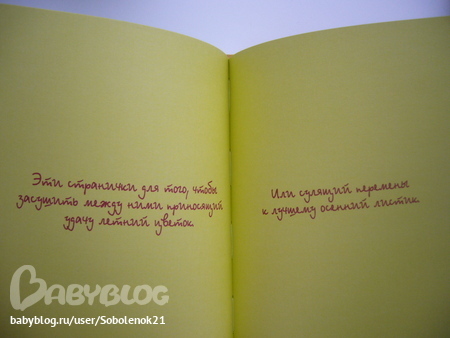 Эти странички для того, чтобы
засушить между ними приносящий
удачу летний цветок
Или сулящий перемены
к лучшему осенний листик
BABYBLOG
babyblog.ru/user/Sobolenok21